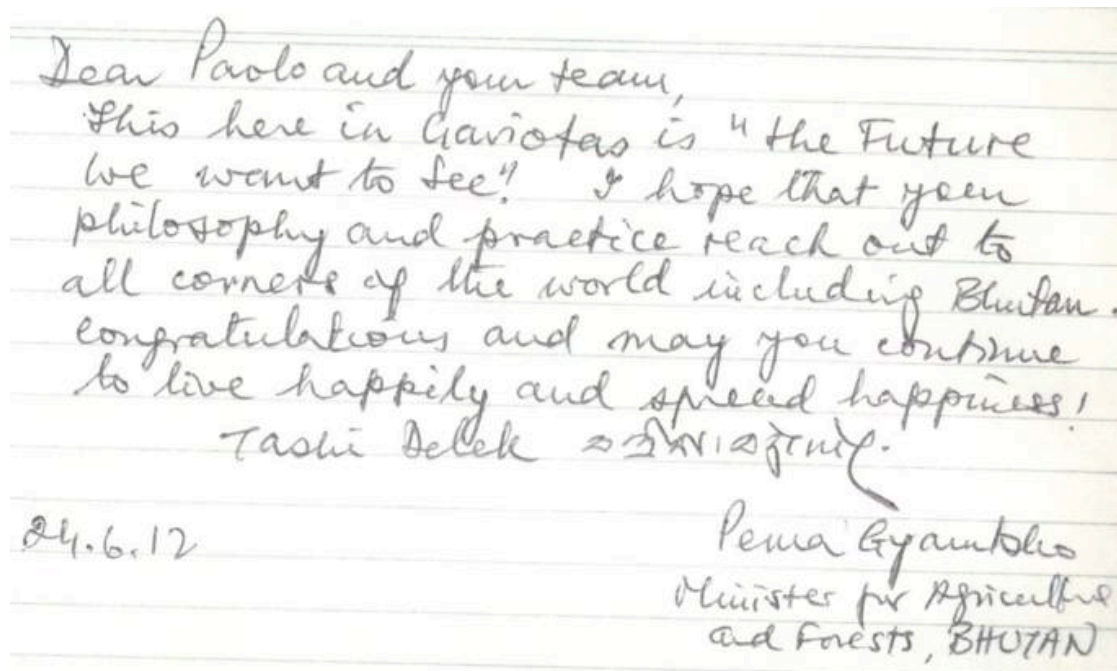 Dear Paolo and your team,
This here in Gaviotas is "the Future
we want to see!" I hope that your
philosophy and practice reach out to
all corners of the world including Bhutan.
congratulations and may you continue
to live happily and spread happiness!
Tashi Delek
24.6.12
Pema Gyamtsho
Minister for Agriculture
and Forests, BHUTAN